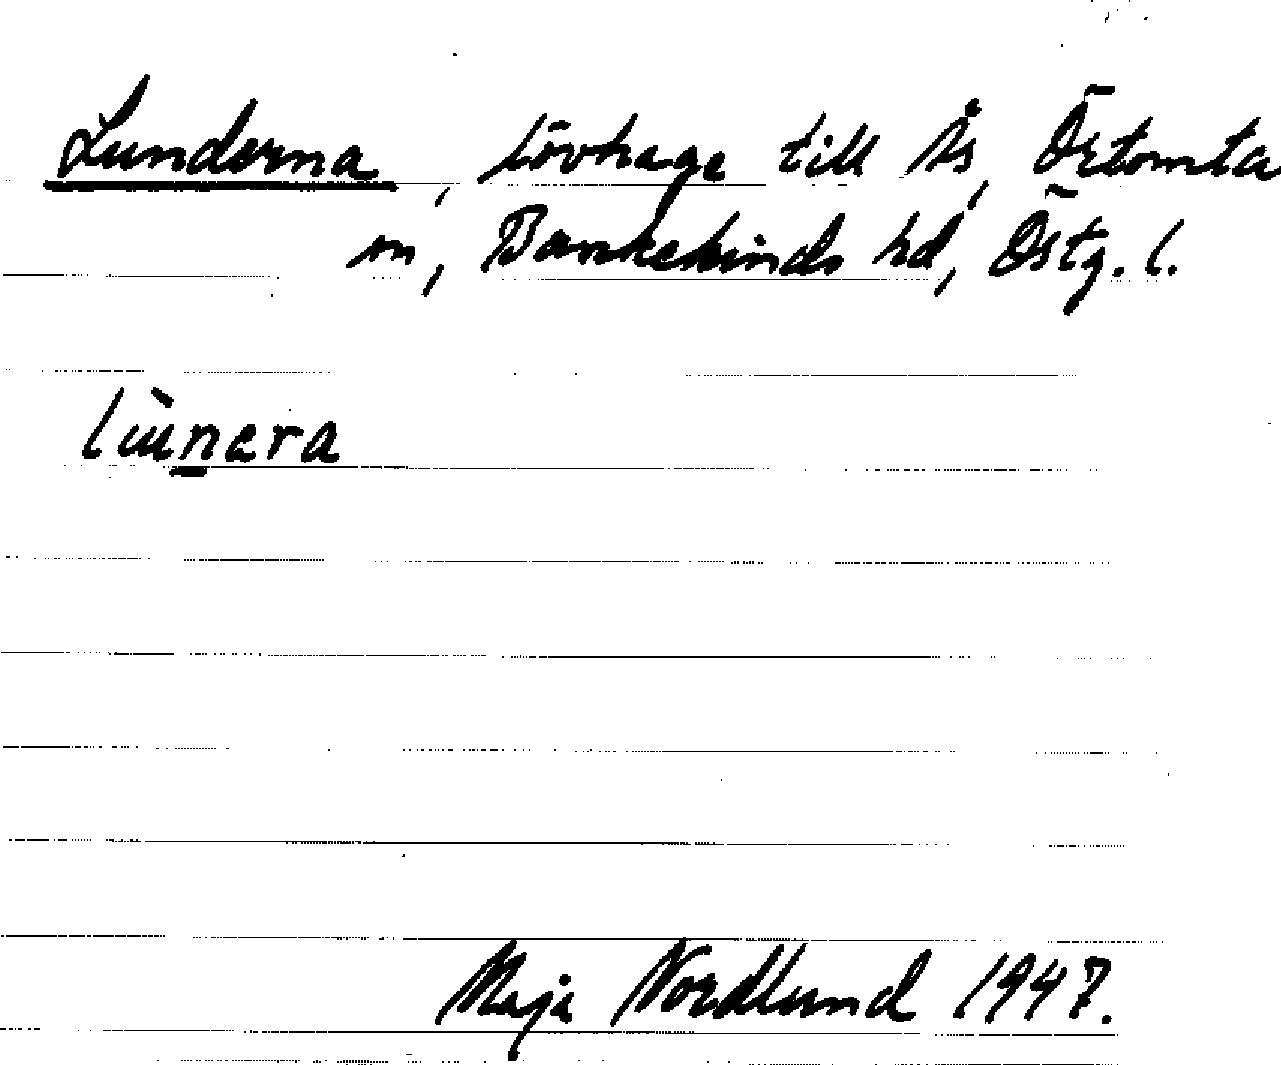 Lunderna, lövhage till Ås, Örtomta
sn, Bankekinds hd, Östg. l.
lùnera
Maja Nordlund 1947.